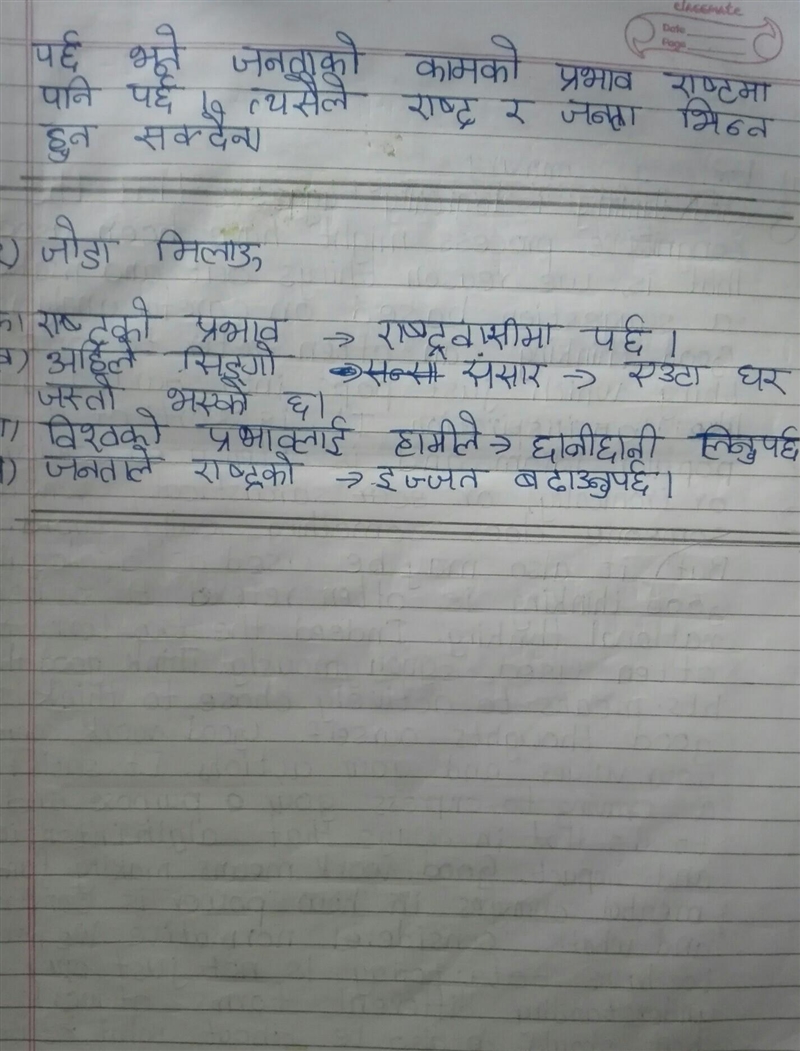 classmate
Date
Page
पर्छ भने जनताको कामको प्रभाव राष्टमा
पनि पर्छ । त्यसैले राष्ट्र र जनता भिन्न
हुन सक्दैन।
२) जोडा मिलाऊ
क) राष्ट्रको प्रभाव → राष्ट्रवासीमा पर्छ ।
ख) अहिले सिङ्गो संसार → एउटा घर
जस्तो भएको छ।
ग) विश्वको प्रभावलाई हामीले → छानीछानी लिनुपर्छ
घ) जनताले राष्ट्रको → इज्जत बढाउनुपर्छ ।